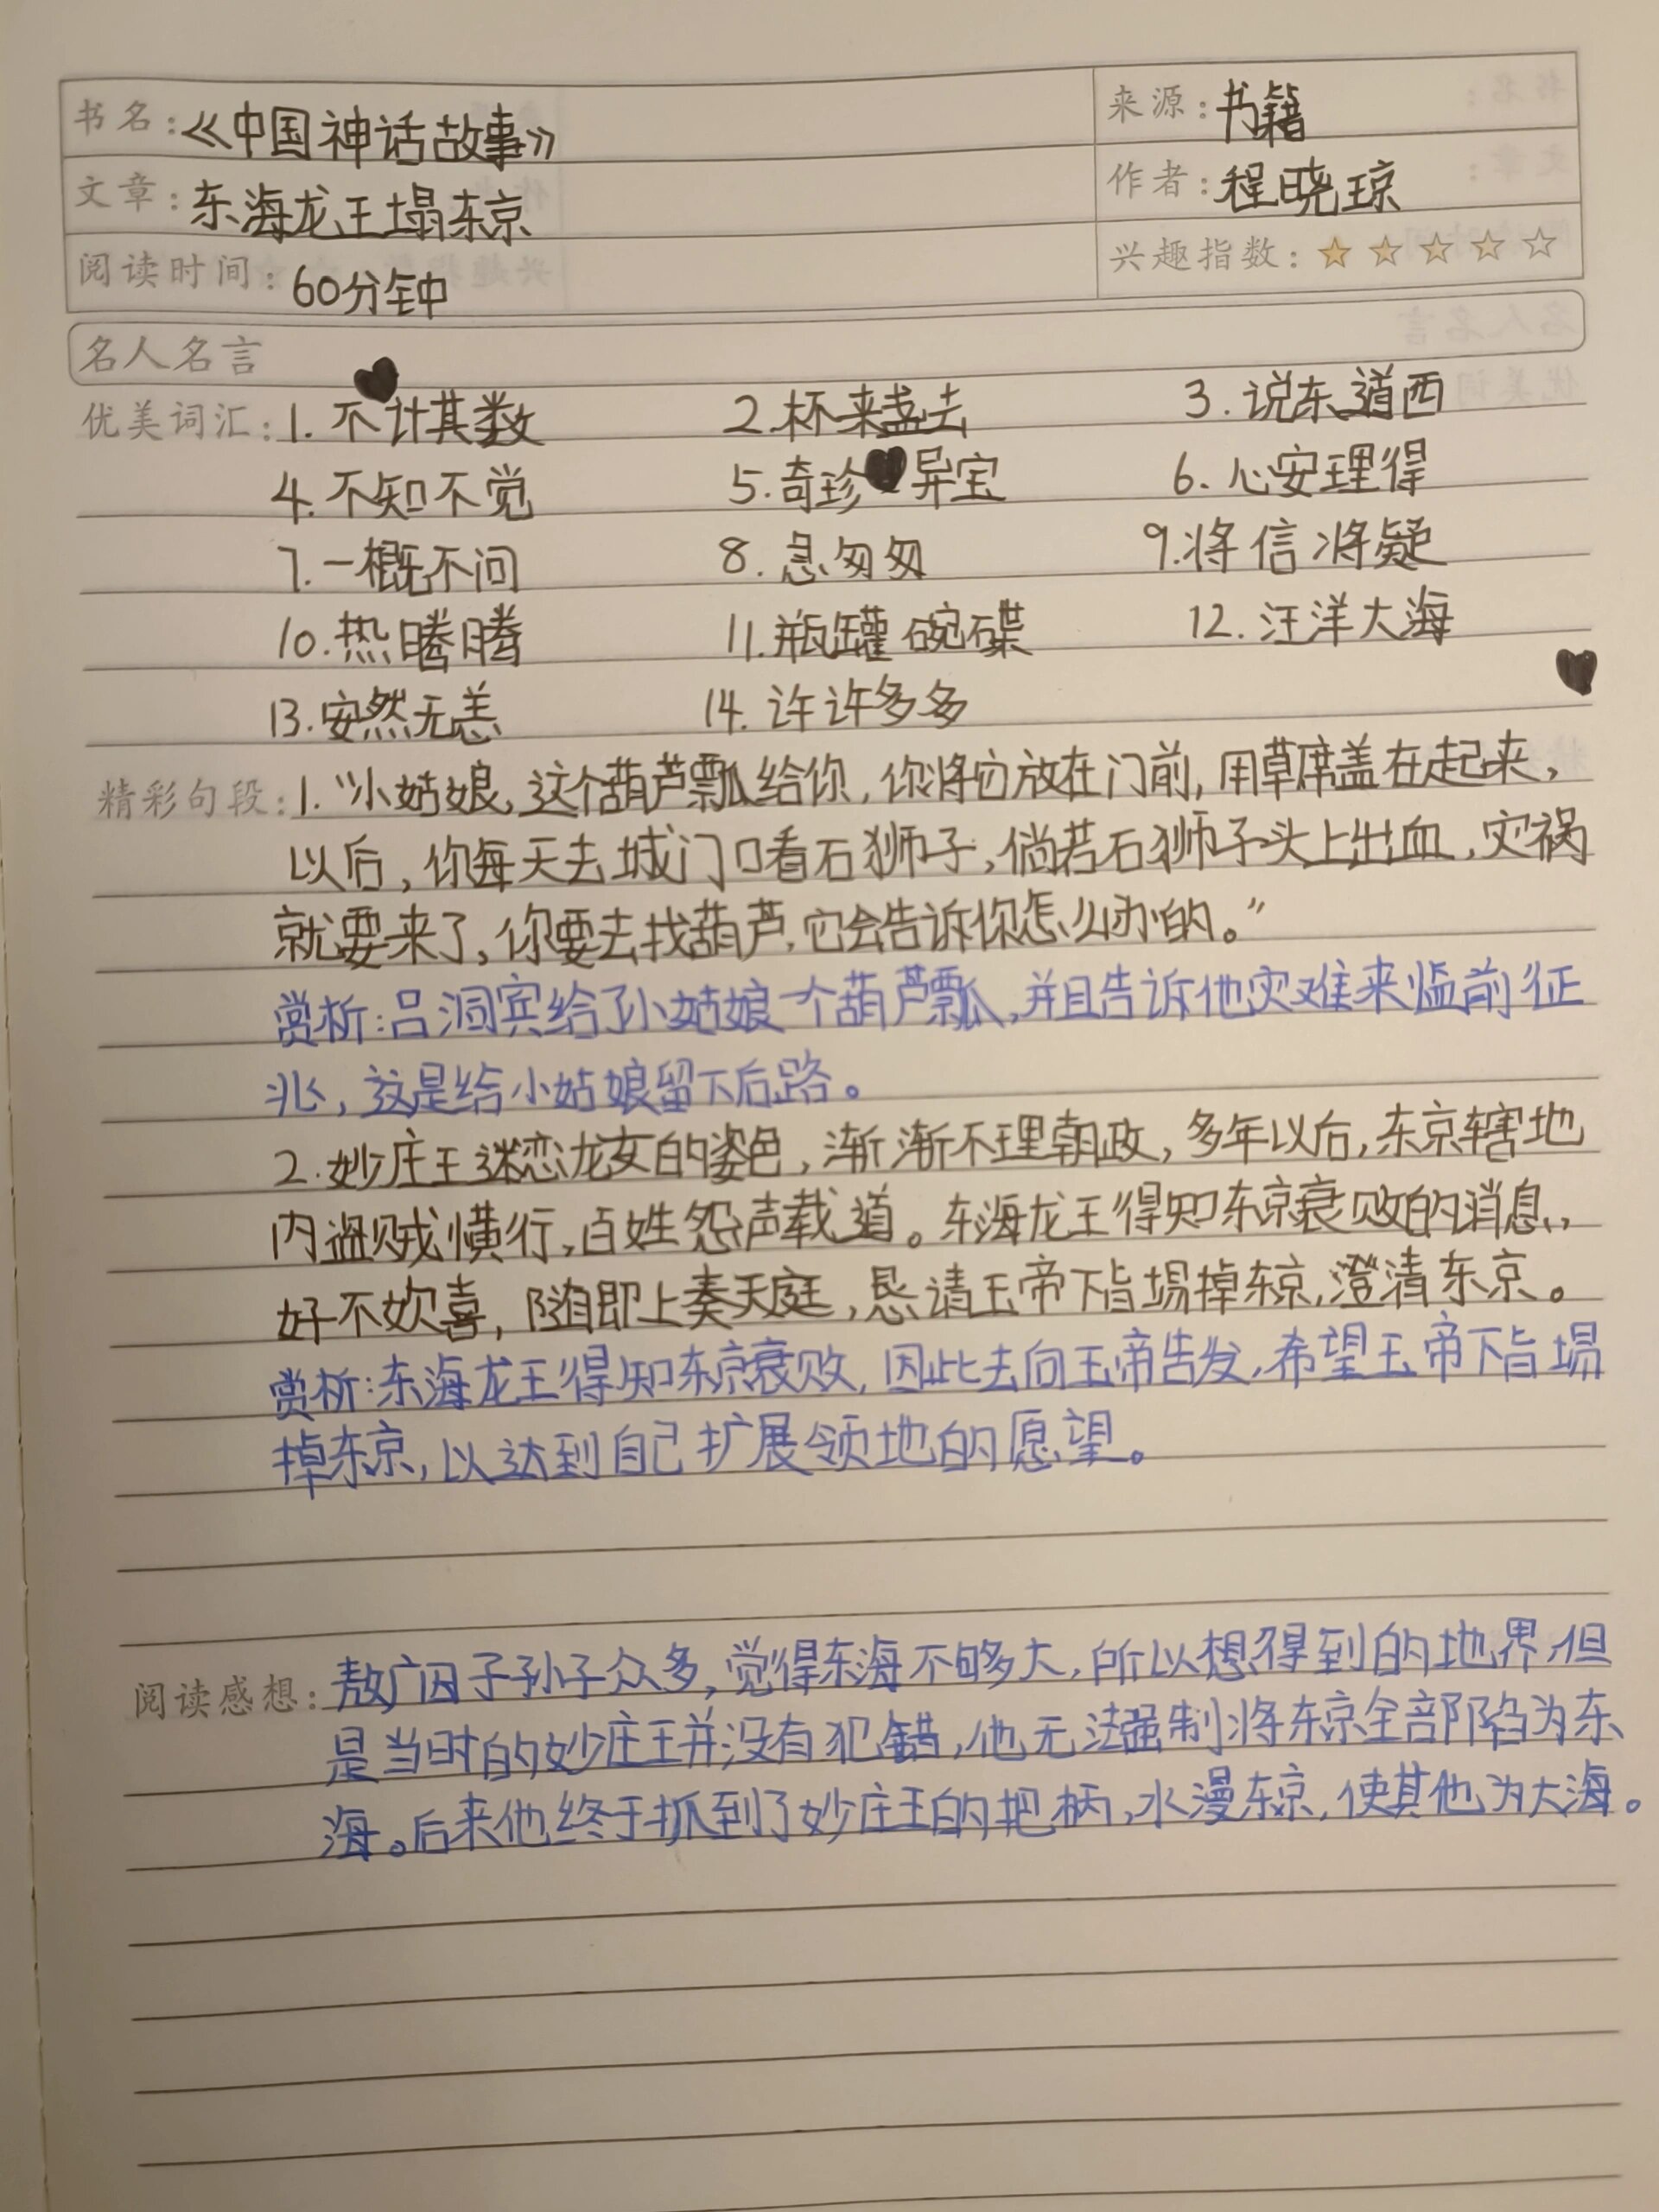 书名：《中国神话故事》 来源：书籍
文章：东海龙王塌东京 作者：程晓琼
阅读时间：60分钟 兴趣指数：
名人名言
优美词汇：1.不计其数 2.杯来盏去 3.说东道西
4.不知不觉 5.奇珍异宝 6.心安理得
7.一概不问 8.急匆匆 9.将信将疑
10.热腾腾 11.瓶罐碗碟 12.汪洋大海
13.安然无恙 14.许许多多
精彩句段：1.“小姑娘，这个葫芦瓢给你，你将它放在门前，用草席盖在起来，
以后，你每天去城门口看石狮子，倘若石狮子头上出血，灾祸
就要来了，你要去找葫芦，它会告诉你怎么办的。”
赏析：吕洞宾给了小姑娘一个葫芦瓢，并且告诉他灾难来临前征
兆，这是给小姑娘留下后路。
2.妙庄王迷恋龙女的姿色，渐渐不理朝政，多年以后，东京辖地
内盗贼横行，百姓怨声载道。东海龙王得知东京衰败的消息，
好不欢喜，随即上奏天庭，恳请玉帝下旨塌掉东京，澄清东京。
赏析：东海龙王得知东京衰败，因此去向玉帝告发，希望玉帝下旨塌
掉东京，以达到自己扩展领地的愿望。
阅读感想：敖广因子孙子众多，觉得东海不够大，所以想得到的地界，但
是当时的妙庄王并没有犯错，他无法强制将东京全部陷为东
海。后来他终于抓到了妙庄王的把柄，水漫东京，使其他为大海。